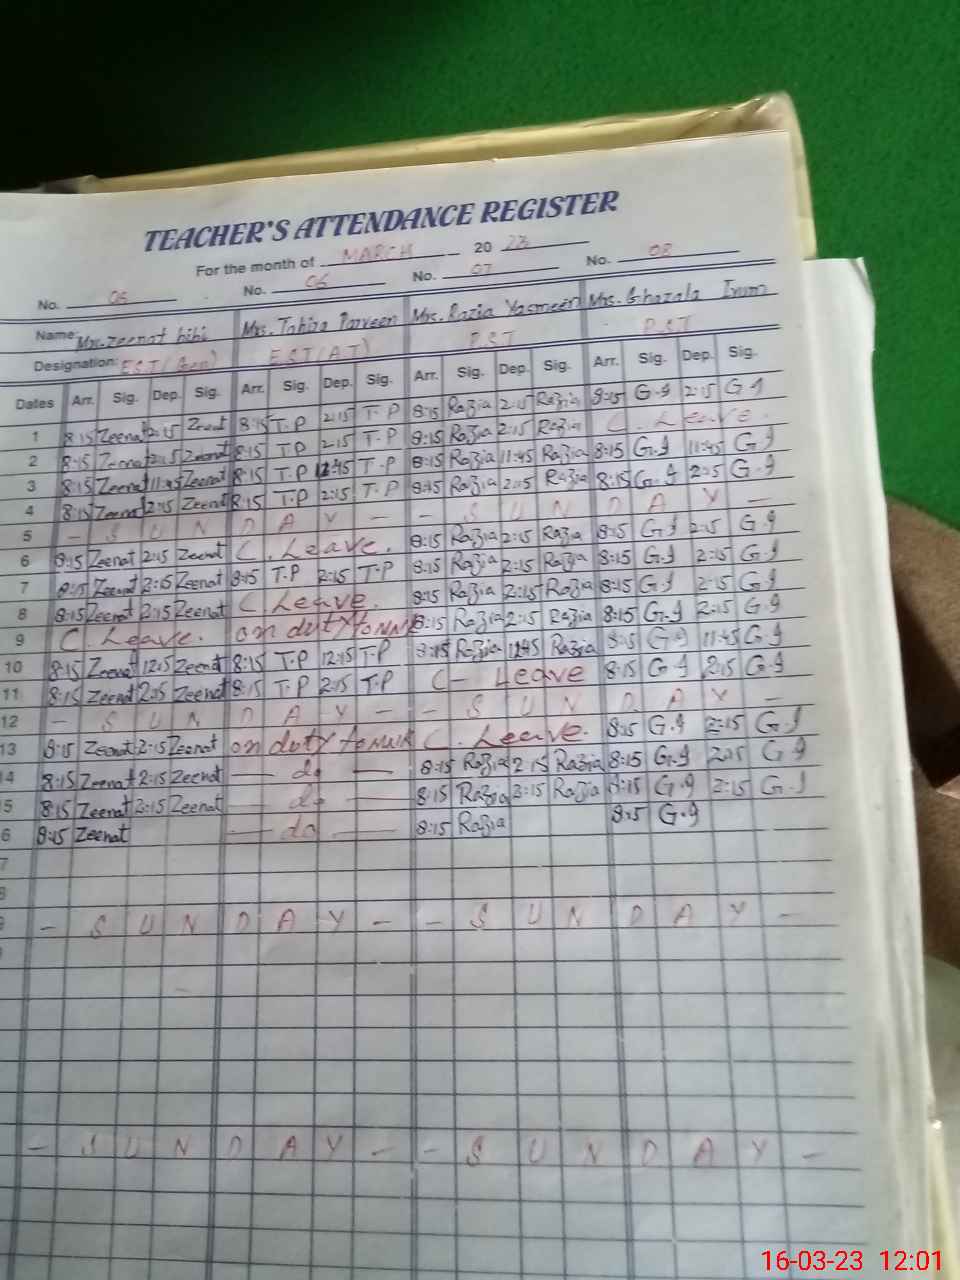 TEACHER'S ATTENDANCE REGISTER
For the month of MARCH 20 23
No. 05 No. 06 No. 07 No. 08
Name: Mrs. Zeenat bibi Mrs. Tahira Parveen Mrs. Razia Yasmeen Mrs. Ghazala Irum
Designation: EST (Gen) EST (AT) PST PST
Dates Arr. Sig. Dep. Sig. Arr. Sig. Dep. Sig. Arr. Sig. Dep. Sig. Arr. Sig. Dep. Sig.
1 8:15 Zeenat 2:15 Zeenat 8:15 T.P 2:15 T.P 8:15 Razia 2:15 Razia 8:15 G.I 2:15 G.I
2 8:15 Zeenat 2:15 Zeenat 8:15 T.P 2:15 T.P 8:15 Razia 2:15 Razia C. Leave.
3 8:15 Zeenat 11:45 Zeenat 8:15 T.P 12:45 T.P 8:15 Razia 11:45 Razia 8:15 G.I 11:45 G.I
4 8:15 Zeenat 2:15 Zeenat 8:15 T.P 2:15 T.P 8:15 Razia 2:15 Razia 8:15 G.I 2:15 G.I
5 - S U N D A Y - - S U N D A Y -
6 8:15 Zeenat 2:15 Zeenat C. Leave. 8:15 Razia 2:15 Razia 8:15 G.I 2:15 G.I
7 8:15 Zeenat 2:15 Zeenat 8:15 T.P 2:15 T.P 8:15 Razia 2:15 Razia 8:15 G.I 2:15 G.I
8 8:15 Zeenat 2:15 Zeenat C Leave. 8:15 Razia 2:15 Razia 8:15 G.I 2:15 G.I
9 C. Leave. on duty to 8:15 Razia 2:15 Razia 8:15 G.I 2:15 G.I
10 8:15 Zeenat 12:15 Zeenat 8:15 T.P 12:15 T.P 8:15 Razia Razia 8:15 G.I 11:45 G.I
11 8:15 Zeenat 2:15 Zeenat 8:15 T.P 2:15 T.P C - Leave 8:15 G.I 2:15 G.I
12 - S U N D A Y - - S U N D A Y -
13 8:15 Zeenat 2:15 Zeenat on duty to C. Leave. 8:15 G.I 2:15 G.I
4 8:15 Zeenat 2:15 Zeenat — do — 8:15 Razia 2:15 Razia 8:15 G.I 2:15 G.I
5 8:15 Zeenat 2:15 Zeenat — do — 8:15 Razia 2:15 Razia 8:15 G.I 2:15 G.I
6 8:15 Zeenat — do — 8:15 Razia 8:15 G.I
7
8
- S U N D A Y - - S U N D A Y -
- S U N D A Y - - S U N D A Y -
16-03-23 12:01